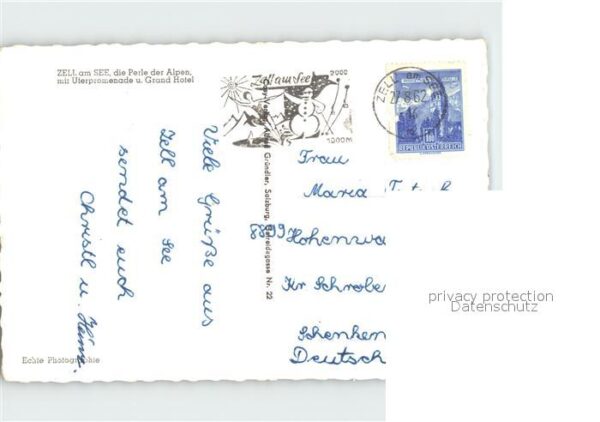 ZELL am SEE, die Perle der Alpen,
mit Uferpromenade u. Grand Hotel
Zell am See
2000
1000M
ZELL am SEE
27.8.62
REPUBLIK ÖSTERREICH
Viele Grüße aus
Zell am See
sendet euch
Christl u.
Gründler, Salzburg, Getreidegasse Nr. 22
Frau
Maria
8899 Hohenwa
Kr Schrobe
Schenken
Deutsch
Echte Photographie
privacy protection
Datenschutz